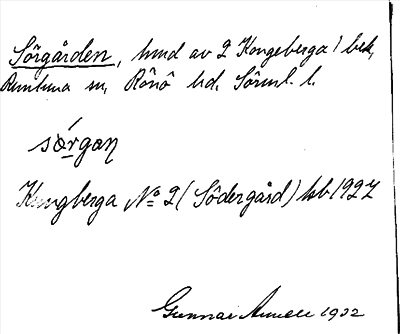 Sörgården, hmd av 2 Kongeberga i bek,
Runtuna sn, Rönö hd. Sörml. l.
sǿrgaŋ
Kungberga No 2 (Södergård) kb 1927
Gunnar 1932